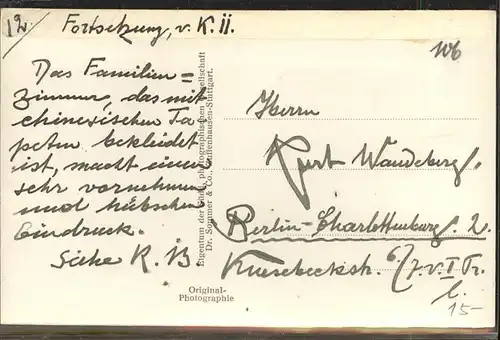 12/
Fortsetzung, v. K. II.
106
Das Familien=
zimmer, das mit
chinesischen Ta-
peten bekleidet
ist, macht einen
sehr vornehmen
und hübschen
Eindruck.
Siehe K. 13
Eigentum der photographischen Gesellschaft
Dr. Sommer & Co., Zuffenhausen-Stuttgart.
Original-
Photographie
Herrn
Kurt Wandeberg.
Berlin-Charlottenburg. 2.
Knesebeckstr. 6/7. v. I Tr.
l.
15-